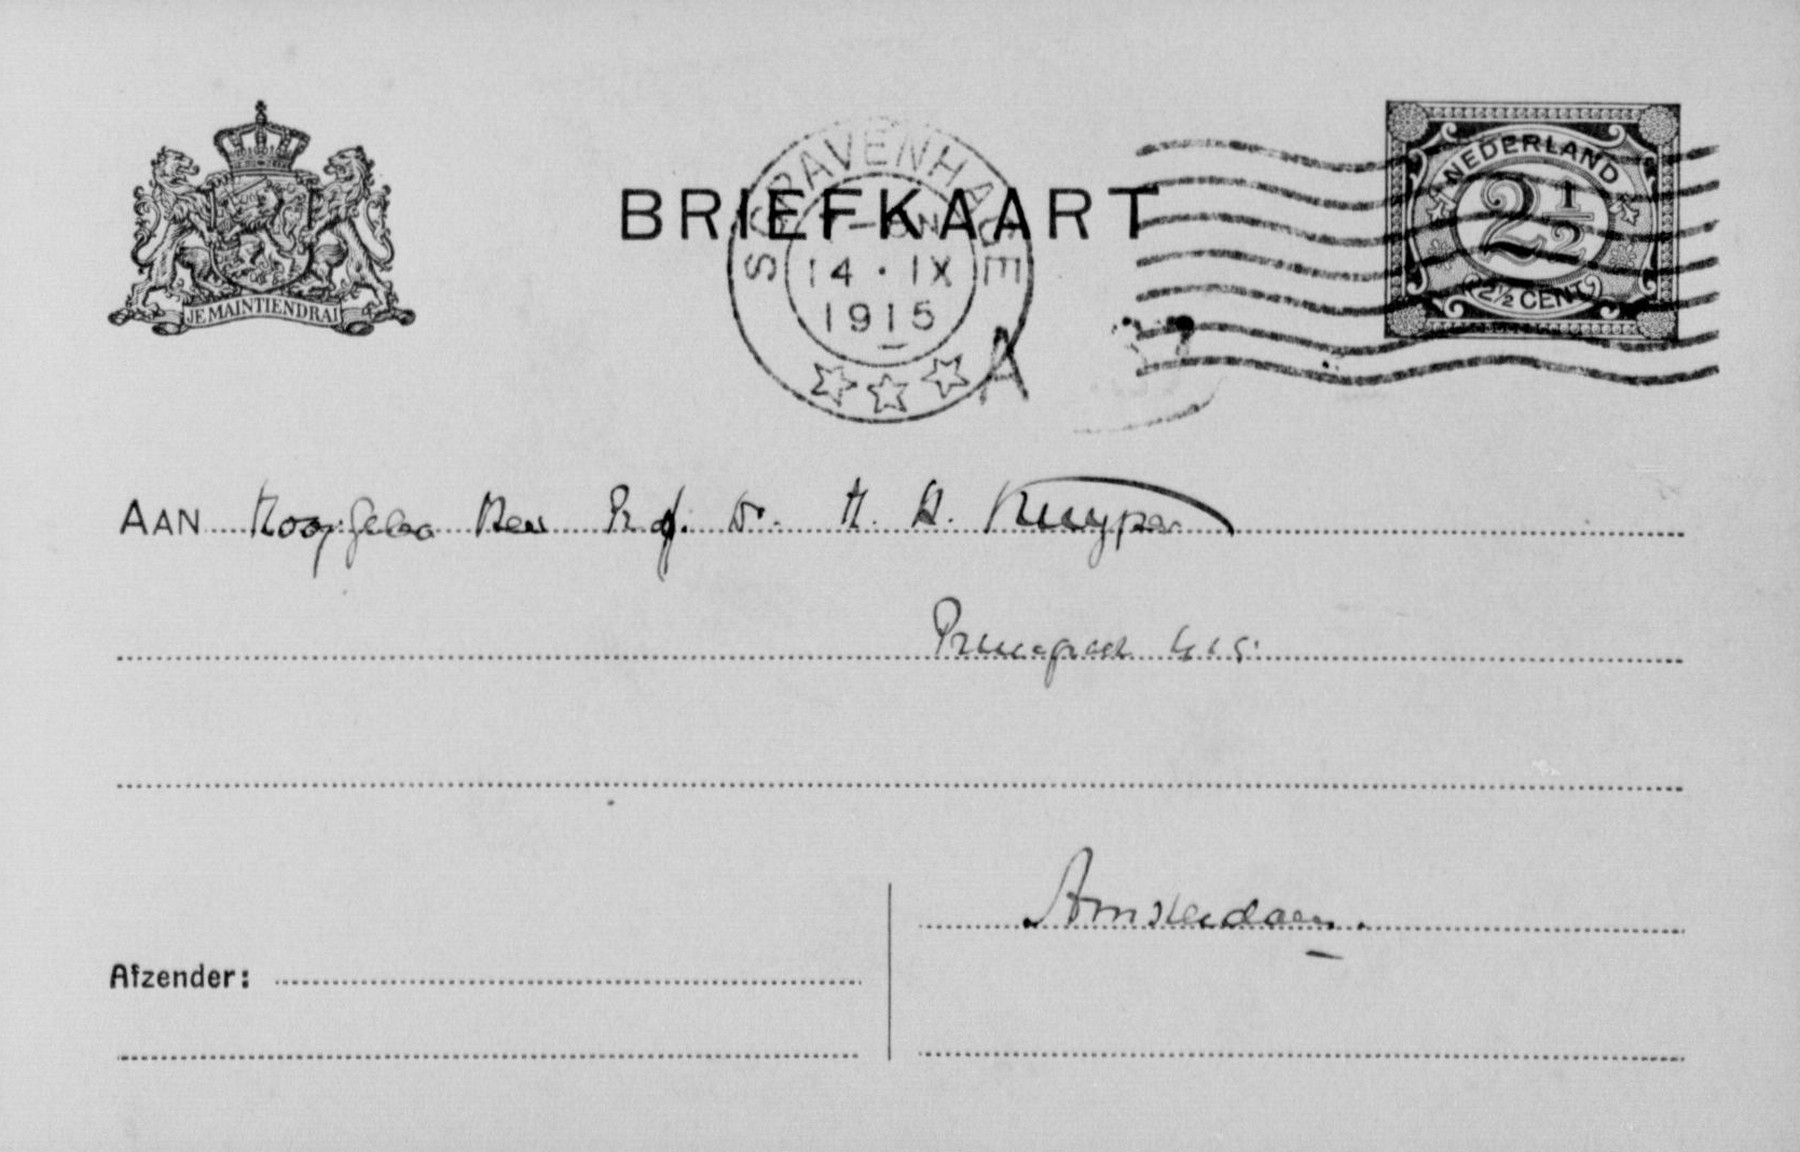 JE MAINTIENDRAI
BRIEFKAART
'S GRAVENHAGE
14 · IX
1915
A
NEDERLAND
2½
2½ CENT
AAN Hooggeleo Heer Prof. Dr. H. H. Kuyper
415.
Amsterdam.
Afzender: